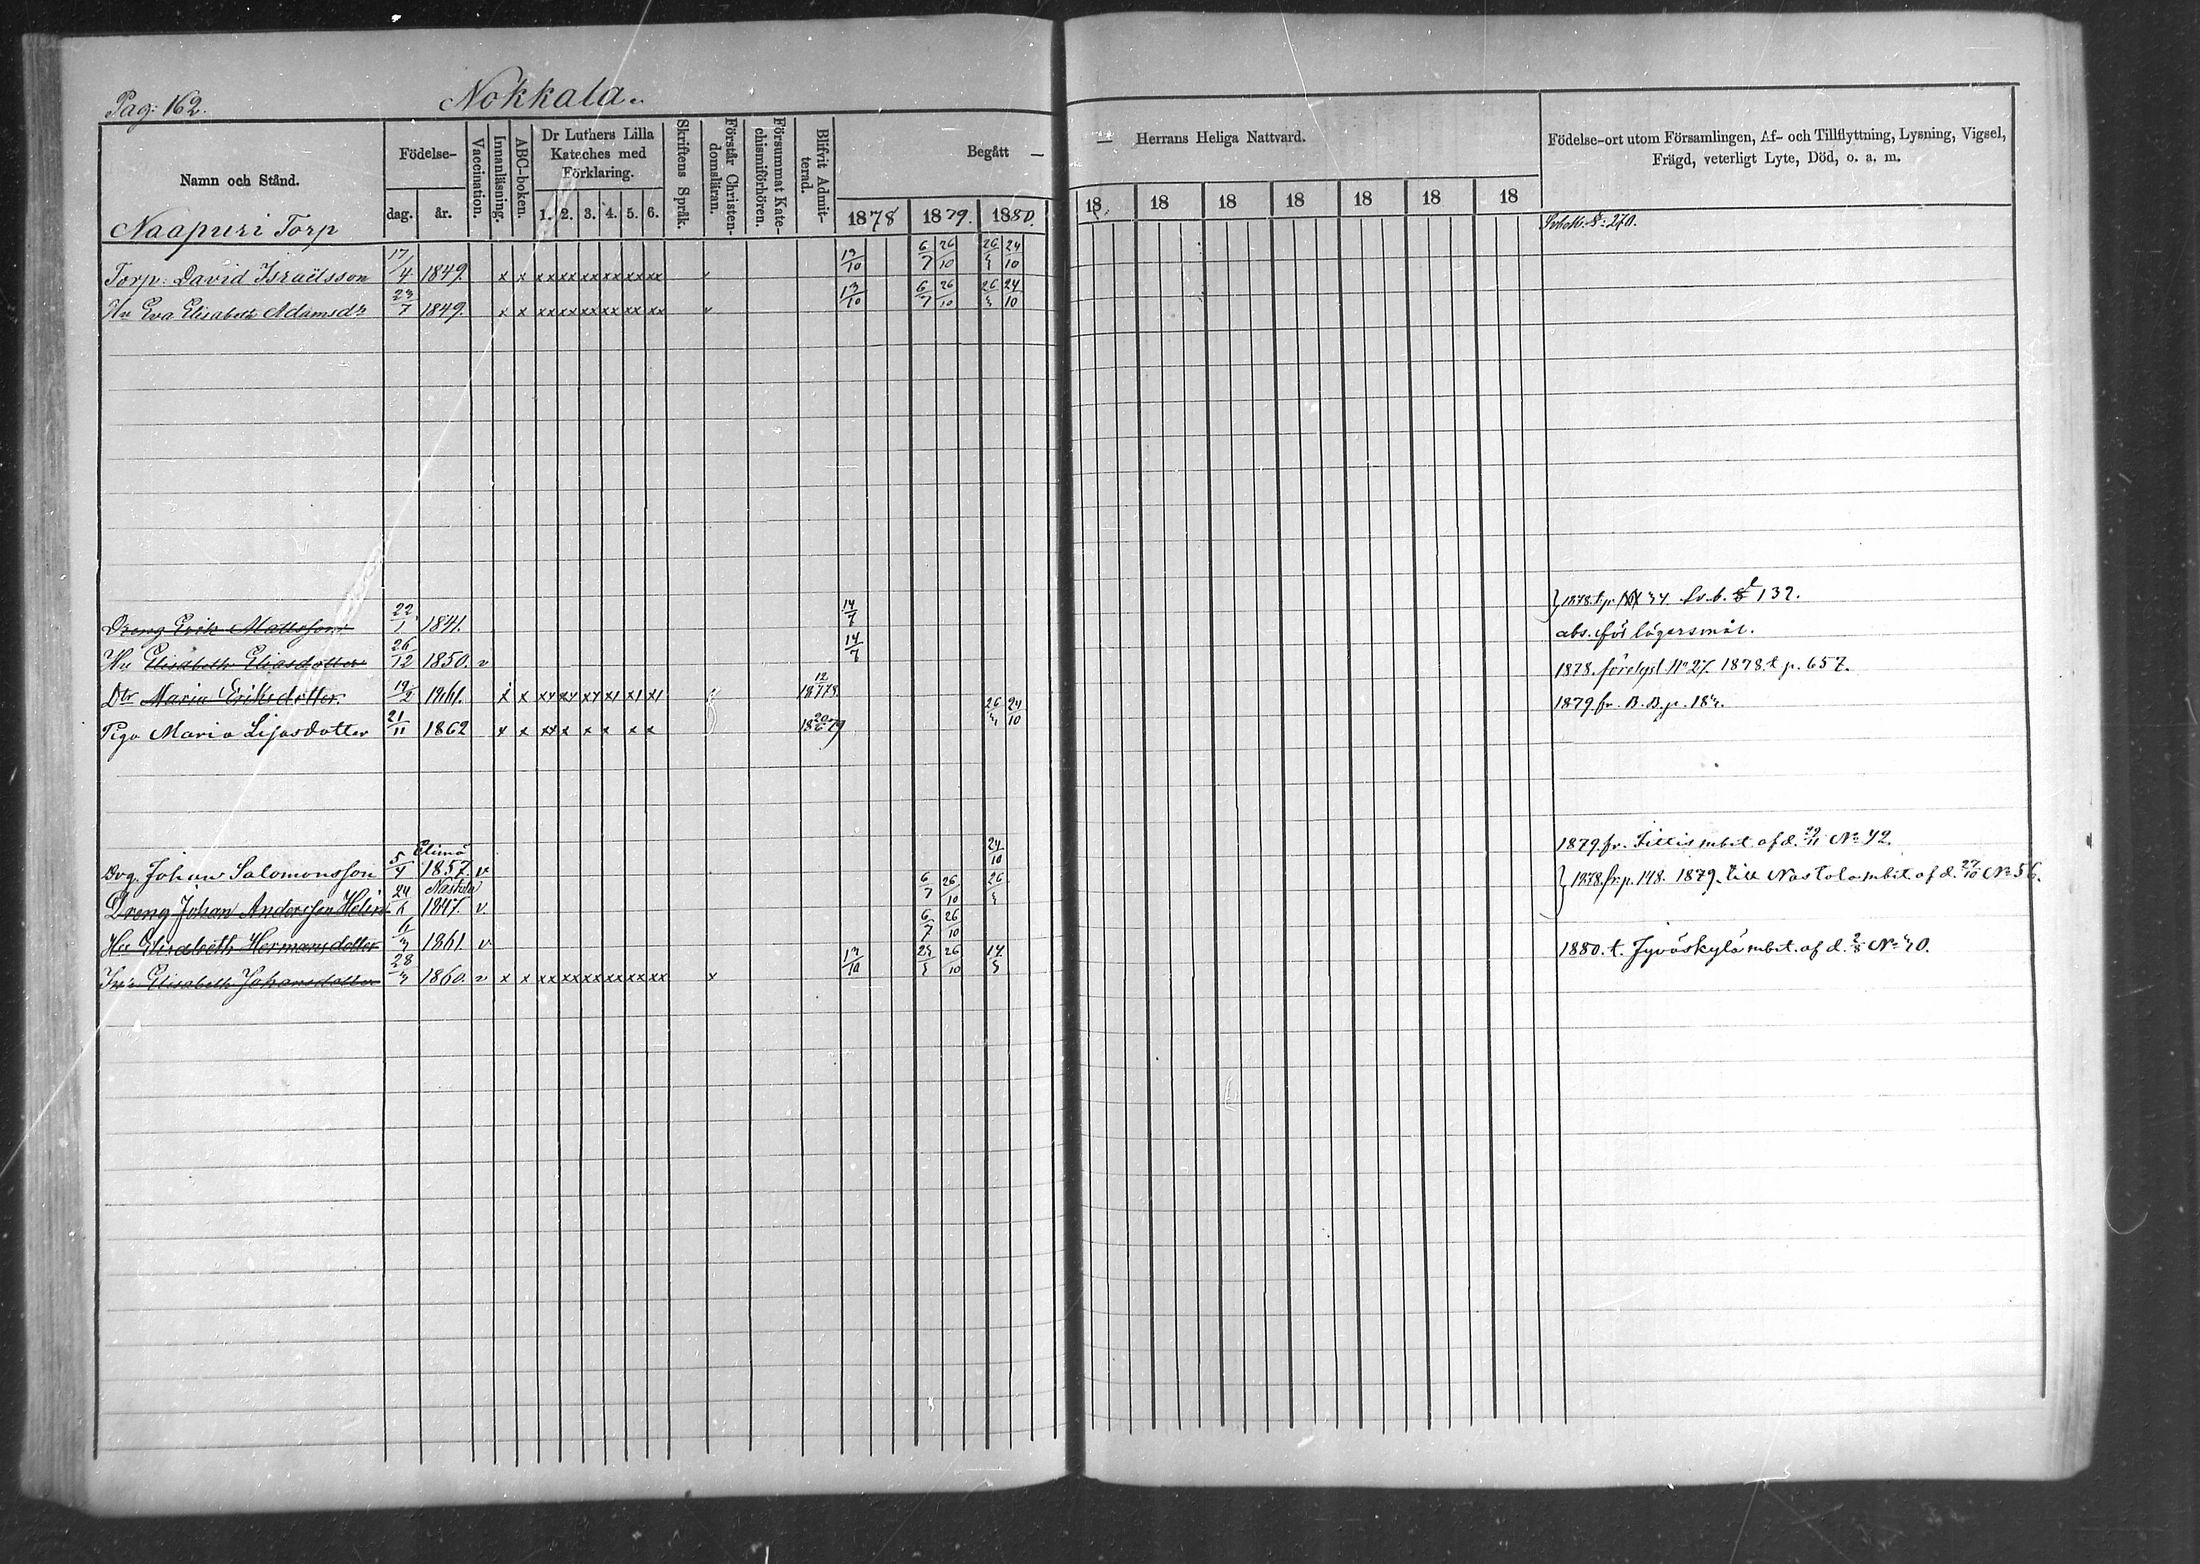 Pag: 162.
Nokkala.
Namn och Stånd.
Födelse-
dag.
år.
Vaccination.
Innanläsning.
ABC-boken.
Dr Luthers Lilla
Kateches med
Förklaring.
1. 2. 3. 4. 5. 6.
Skriftens Språk.
Förstår Christen-
domsläran.
Försummat Kate-
chismiförhören.
Blifvit Admit-
terad.
Begått —
— Herrans Heliga Nattvard.
1878 1879. 1880.
18 18 18 18 18 18 18
Födelse-ort utom Församlingen, Af- och Tillflyttning, Lysning, Vigsel,
Frägd, veterligt Lyte, Död, o. a. m.
Naapuri Torp
Torp. David Israëlsson 17/4 1849. x x xx xx xx xx xx xx 13/10 6/7 26/10 24/10
Hu Eva Elisabeth Adamsdr 23/7 1849. x x xx xx xx xx xx xx 13/10 6/7 26/10 24/10
Dreng Erik Mattsson 22/1 1841. 14/7
Hu Elisabeth Eliasdotter 26/12 1850. v 14/7 abs. för lägersmål.
Dtr Maria Eriksdotter 19/2 1861. 1878. förelyst No 27. 1878. t p. 657.
Piga Maria Lijasdotter 21/11 1862 24/10 1879 fr. B.B.p.
Drg. Johan Salomonsson 5/4 Elimä 1857. v 24/10 1879. fr. mbit. af d. No 42.
Dreng Johan Andersson Helin 24/6 Nastola 1847. v. 6/7 26/10 1878. fr p. 148. 1879. till Nastola mbit. af d. 27/10 No 56.
Hu Elisabeth Hermansdotter 6/3 1861 v 6/7 26/10
Elisabeth Johansdotter 28/3 1860. v x x xx xx xx xx xx xx x 13/10 26/10 1880. t. Jyväskylä mbit. af d.